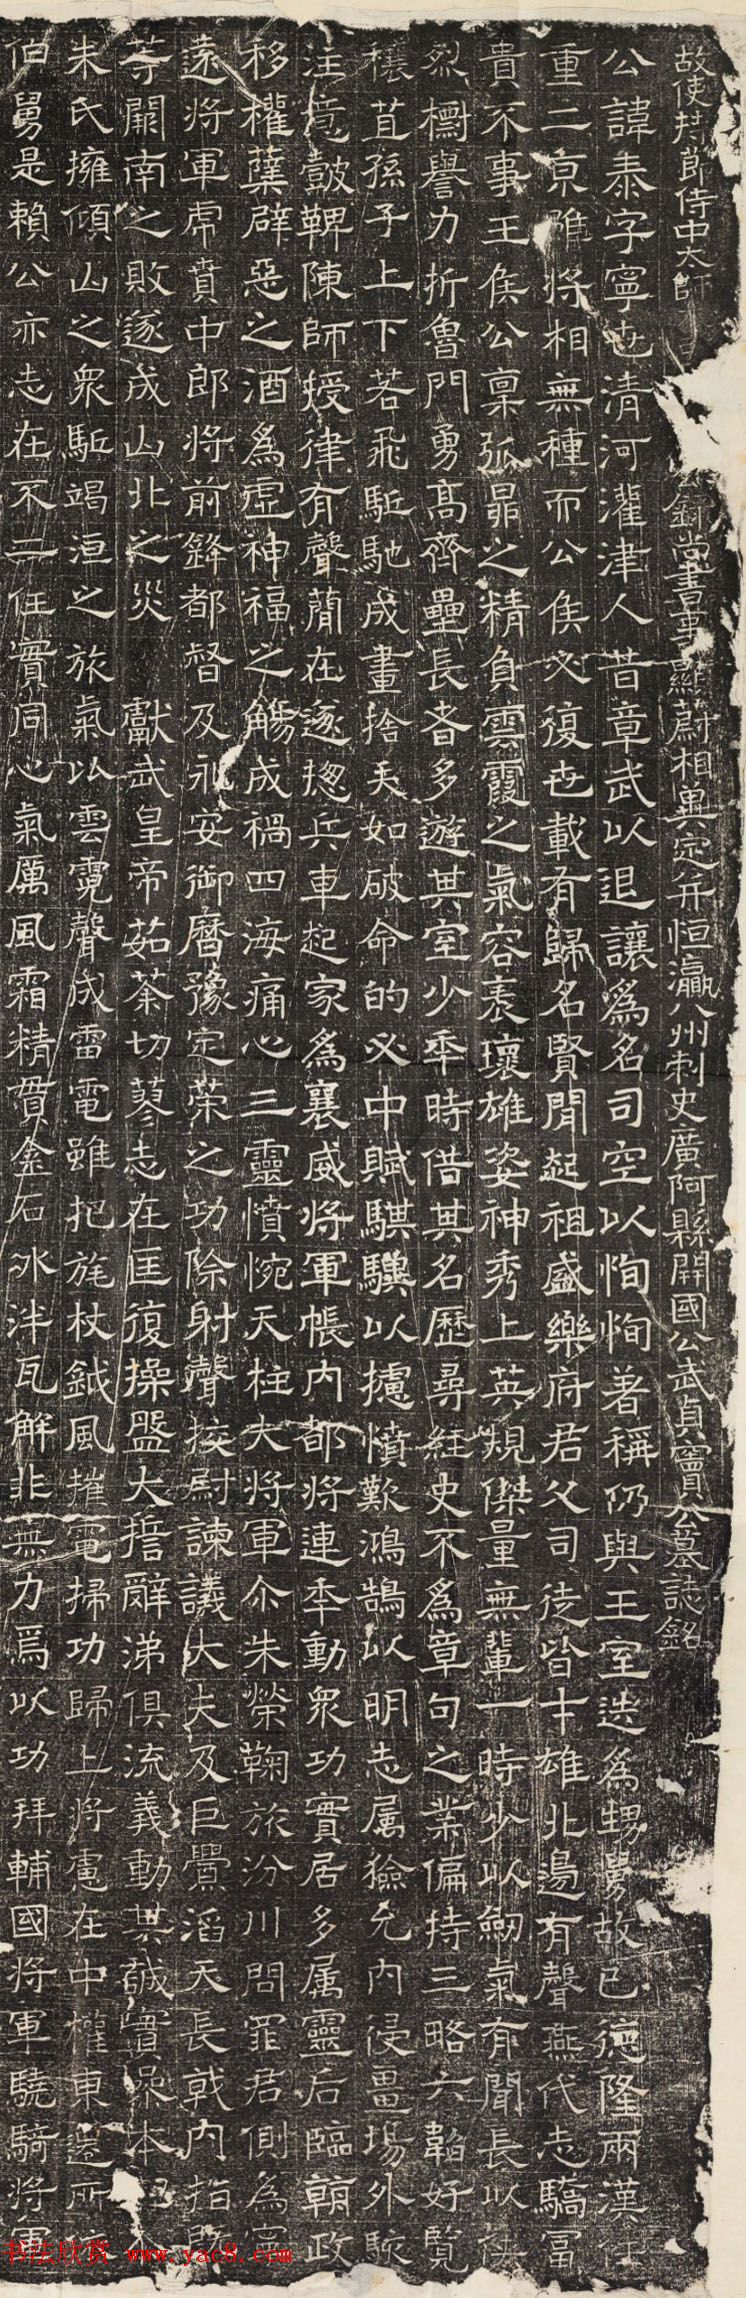 故使持節侍中太師錄尚書事顯蔚相冀定并恒瀛八州刺史廣阿縣開國公武貞竇公墓誌銘
公諱泰字寧世清河灌津人昔章武以退讓為名司空以恂恂著稱仍與王室迭為甥舅故已德隆兩漢
重二京雖將相無種而公侯必復世載有歸名賢間起祖盛樂府君父司徒皆才雄北邊有聲燕代志驕冨
貴不事王侯公稟弧昴之精負雲霞之氣容表瓌雄姿神秀上英規傑量無輩一時少以劒氣有聞長以
烈檦譽力折魯門勇高齊壘長者多遊其室少年時借其名歷尋經史不為章句之業偏持三略六韜好覽
穰苴孫子上下若飛駈馳成畫捨矢如破命的必中賦騏驥以攄憤歎鴻鵠以明志属獫允內侵畺場外駭
注意鼓鞞陳師授律有聲蕳在遂揔兵車起家為襄威將軍帳內都將連年動衆功實居多属靈后臨朝政
移權蘖辟惡之酒為虛神福之觴成禍四海痛心三靈憤惋天柱大將軍尒朱榮鞠旅汾川問罪君側為
遠將軍虎賁中郎將前鋒都督及永安御曆豫定榮之功除射聲挍尉諫議大夫及巨舋滔天長戟內指
等闕南之敗遂成山北之災 獻武皇帝茹荼切蓼志在匡復操盤大誓辭涕俱流義動其誠實
朱氏擁傾山之衆駈竭洹之旅氣以雲霓聲成雷電雖把旄杖鉞風摧電掃功歸上將慮在中權東還所
伯舅是賴公亦志在不二任實同心氣厲風霜精貫金石冰泮瓦解非無力焉以功拜輔國將軍驍騎將軍
书法欣赏 www.yac8.com